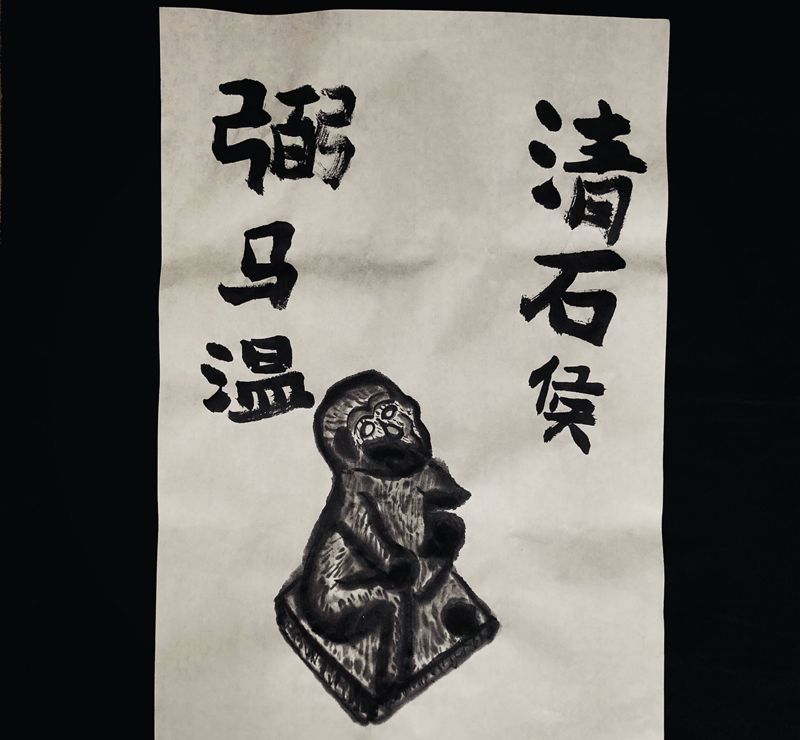 清石侯
弼马温